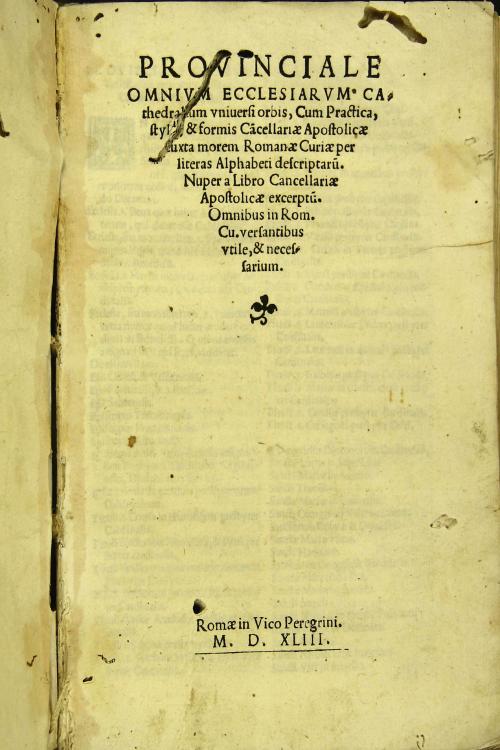 PROVINCIALE
OMNIVM ECCLESIARVM· CA-
thedralium vniuersi orbis, Cum Practica,
stylo, & formis Cãcellariæ Apostolicæ
iuxta morem Romanæ Curiæ per
literas Alphabeti descriptarũ.
Nuper a Libro Cancellariæ
Apostolicæ excerptũ.
Omnibus in Rom.
Cu. versantibus
vtile, & neces-
sarium.
Romæ in Vico Peregrini.
M. D. XLIII.